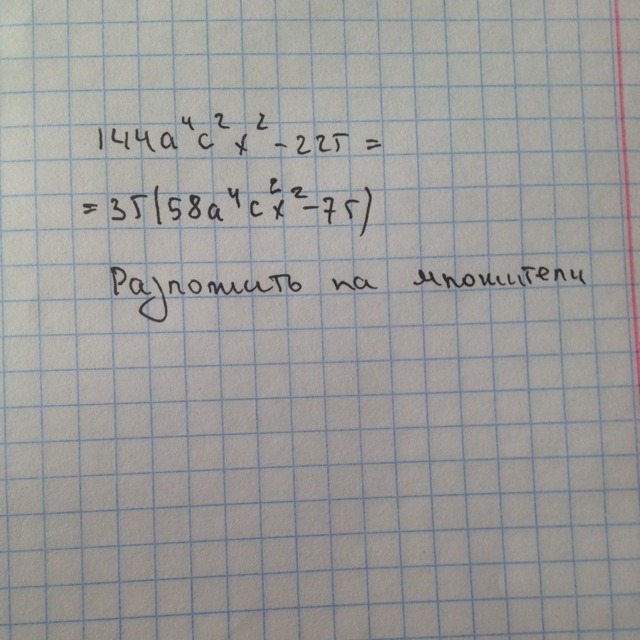 144a⁴c²x² - 225 =
= 35(58a⁴c²x² - 75)
Разложить на множители